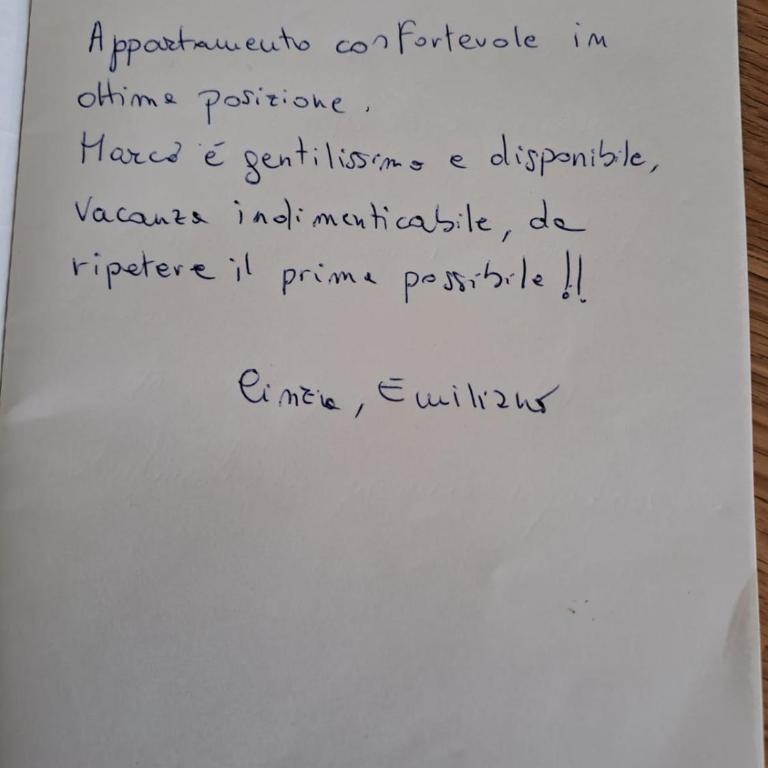 Appartamento confortevole in
ottima posizione.
Marco é gentilissimo e disponibile,
Vacanza indimenticabile, da
ripetere il prima possibile!!
Cinzia, Emiliano